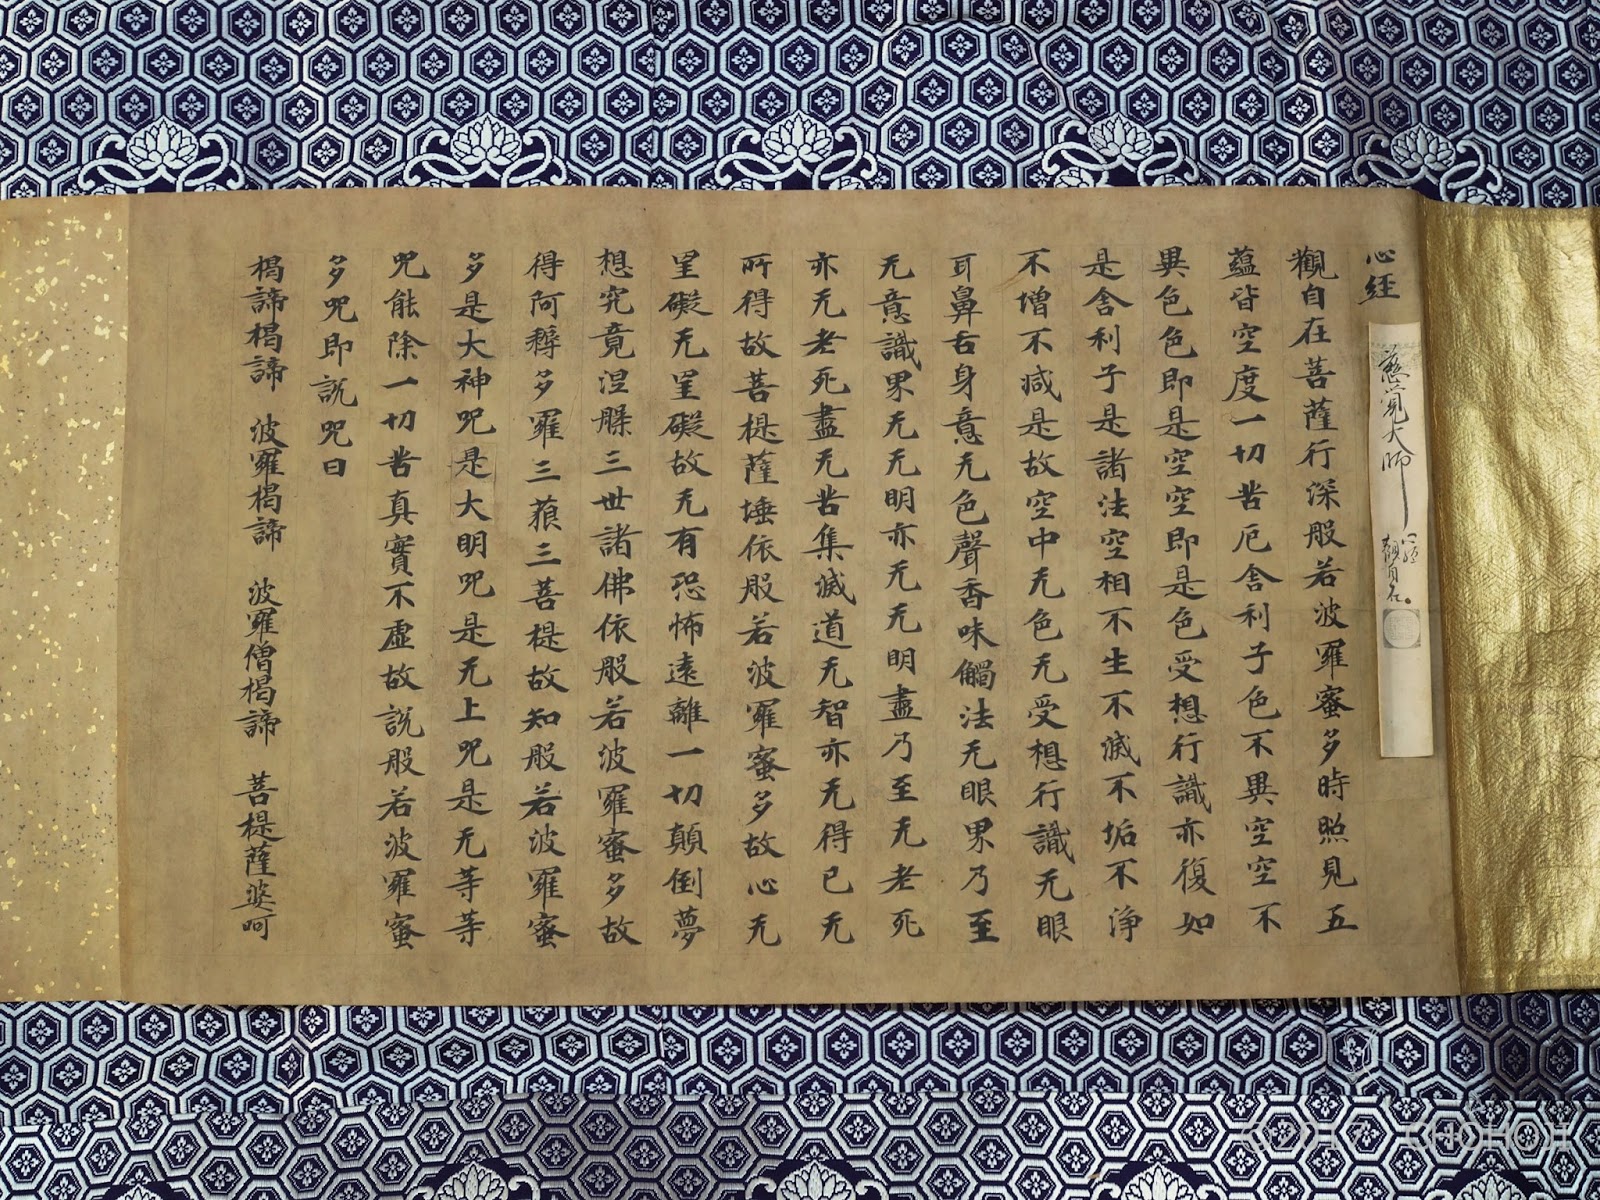 心経
慈覚大師
心経
観自在。
觀自在菩薩行深般若波羅蜜多時照見五
蘊皆空度一切苦厄舍利子色不異空空不
異色色即是空空即是色受想行識亦復如
是舍利子是諸法空相不生不滅不垢不淨
不增不减是故空中无色无受想行識无眼
耳鼻舌身意无色聲香味觸法无眼界乃至
无意識界无无明亦无无明盡乃至无老死
亦无老死盡无苦集滅道无智亦无得已无
所得故菩提薩埵依般若波羅蜜多故心无
罣礙无罣礙故无有恐怖遠離一切顛倒夢
想究竟涅槃三世諸佛依般若波羅蜜多故
得阿耨多羅三藐三菩提故知般若波羅蜜
多是大神咒是大明咒是无上咒是无等等
咒能除一切苦真實不虛故說般若波羅蜜
多咒即說咒曰
揭諦揭諦 波羅揭諦 波羅僧揭諦 菩提薩婆呵
©2017 CHOHOJI